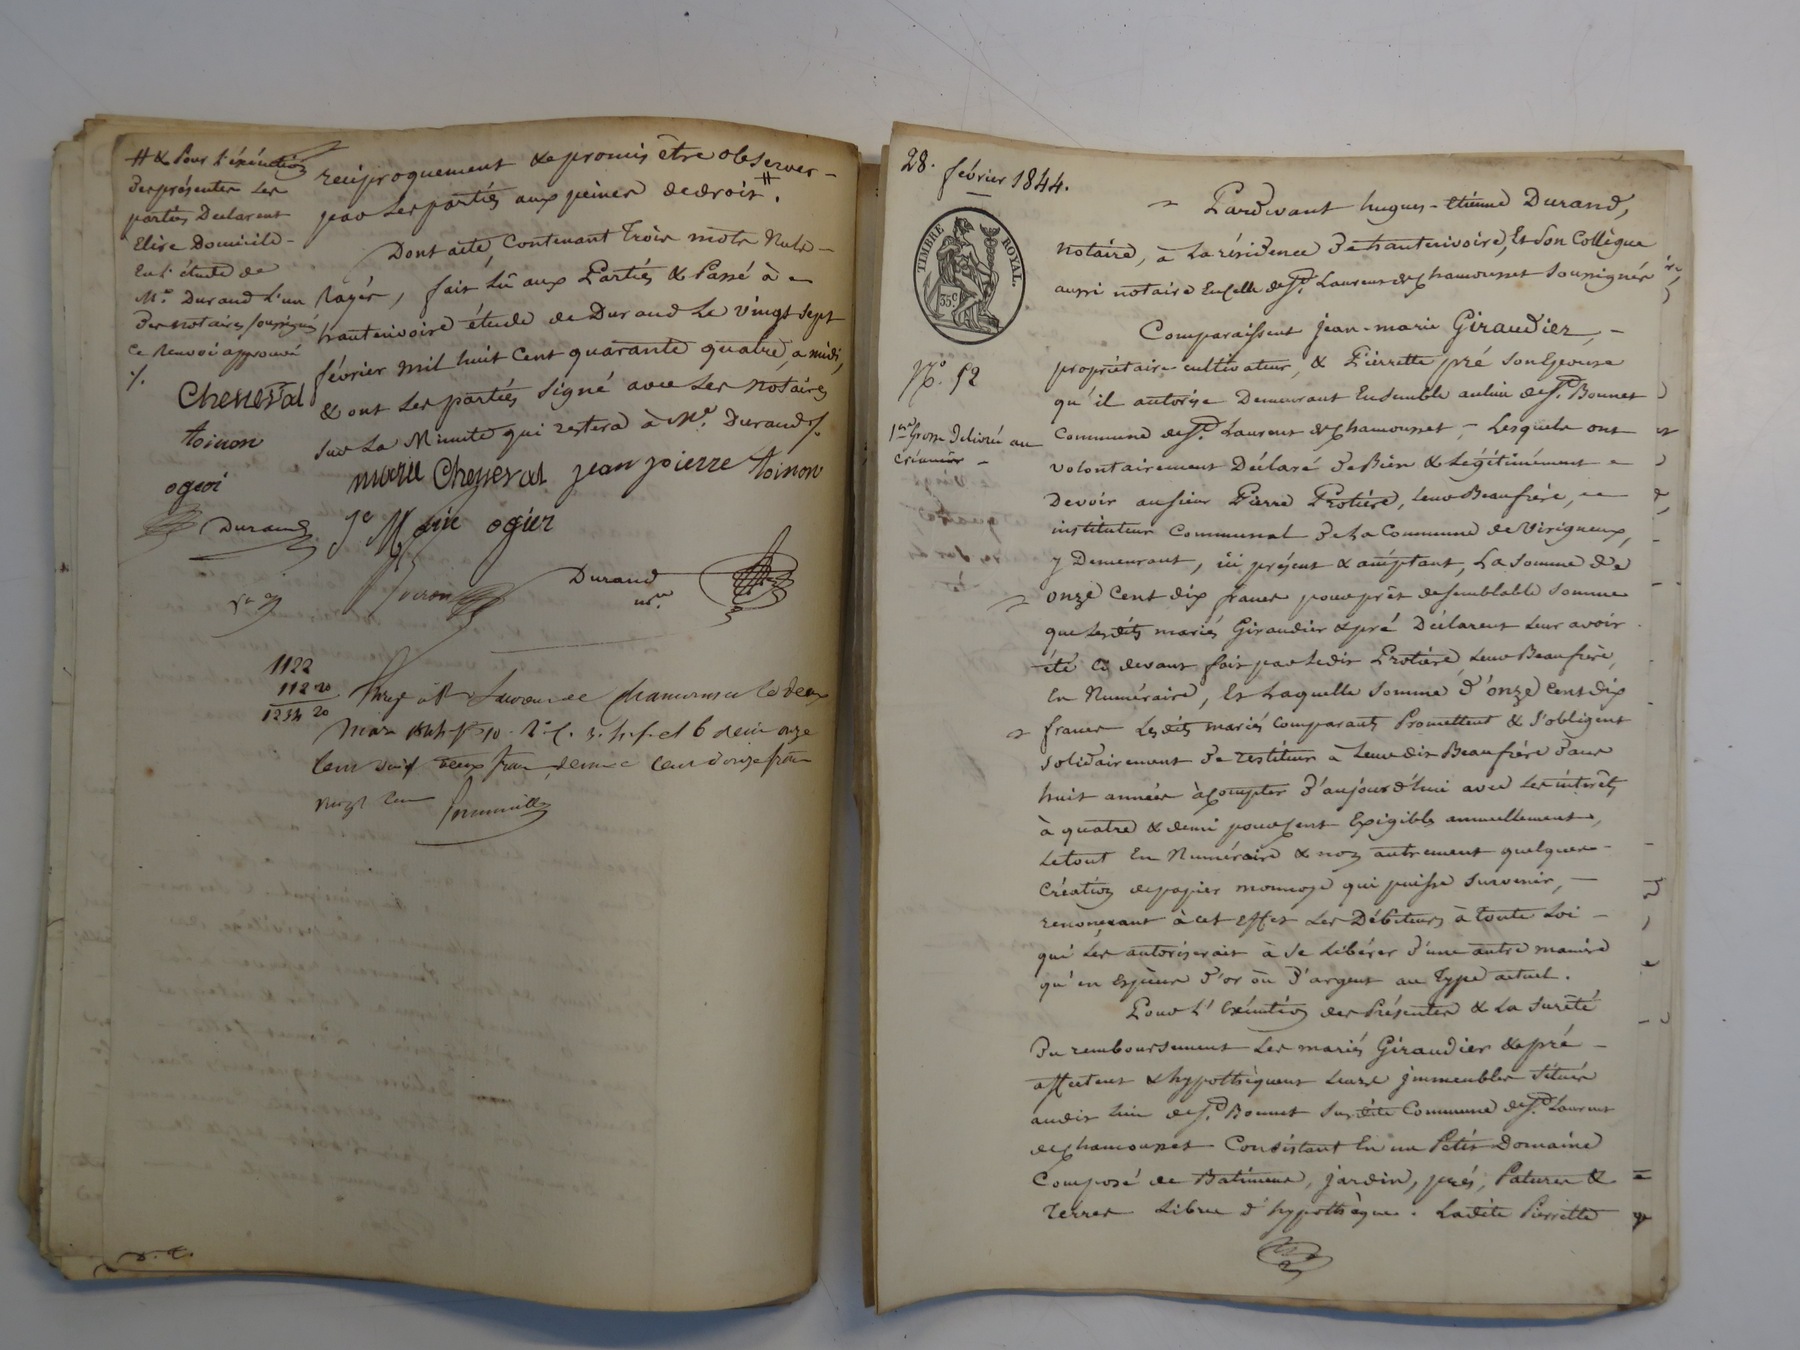 # & Pour l'éxécution
des présentes les
parties Déclarent
Elire Domicile -
En l'étude de
Me. Durand l'un
des notaires soussignés
ce Renvoi approuvé
./.
Cheneval
toinon
ogier
Durand
réciproquement & promis être observer -
par les parties aux peines de droit #.
Dont acte, Contenant Trois mots Nuls -
Rayés, fait lû aux Parties & Passé à
hauterivoire étude de Durand Le vingt sept
février mil huit Cent quarante quatre, a midi,
& ont les parties signé avec les notaires
sur La Minute qui restera à Me. Durand ./.
marie Cheneval jean pierre toinon
ogier
Durand
nre.
1122
112 20
1234 20
28. février 1844.
TIMBRE ROYAL.
35c.
No. 52
1ere Grosse Délivrée au
créancier -
Pardevant hugues - étienne Durand,
notaire, à La résidence de hauterivoire, Et Son Collègue
aussi notaire En celle de St. Laurent de Chamousset soussignés
Comparaissent jean-marie Giraudier, -
propriétaire cultivateur, & Pierrette pré son Epouse
qu'il autorise Demeurant Ensemble au lieu de St. Bonnet
Commune de St. Laurent de Chamousset, - Lesquels ont
volontairement Déclaré de Bien & Légitimement
Devoir au sieur Pierre Protière, leur Beaufrère,
instituteur Communal de La Commune de Virigneux,
y Demeurant, ici présent & acceptant, La Somme De
onze Cent dix francs pour prêt de semblable Somme
que lesdits mariés Giraudier & pré Déclarent leur avoir
été Ci devant fait par ledit Protière, leur Beaufrère,
En Numéraire, Et Laquelle Somme d'onze Cent dix
francs Lesdits mariés Comparants Promettent & S'obligent
Solidairement de restituer à Leurdit Beaufrère dans
huit années à Compter d'aujourd'hui avec Les intérêts
à quatre & demi pour Cent Exigibles annuellement,
Le tout En Numéraire & non autrement quelques -
Création de papier monnoye qui puisse survenir, -
renonçant à cet effet Les Débiteurs à toute Loi -
qui Les autoriserait à se Libérer d'une autre manière
qu'en Espèces d'or ou d'argent au Type actuel.
Pour L'Exécution des Présentes & La Sureté
Du remboursement Les mariés Giraudier & pré -
affectent & hypothèquent leurs immeubles Situés
audit lieu de St. Bonnet Susdite Commune de St. Laurent
de Chamousset Consistant En un Petit Domaine
Composé de Batiments, Jardin, prés, Patures &
Terres Libres d'hypothèque. Ladite Pierrette